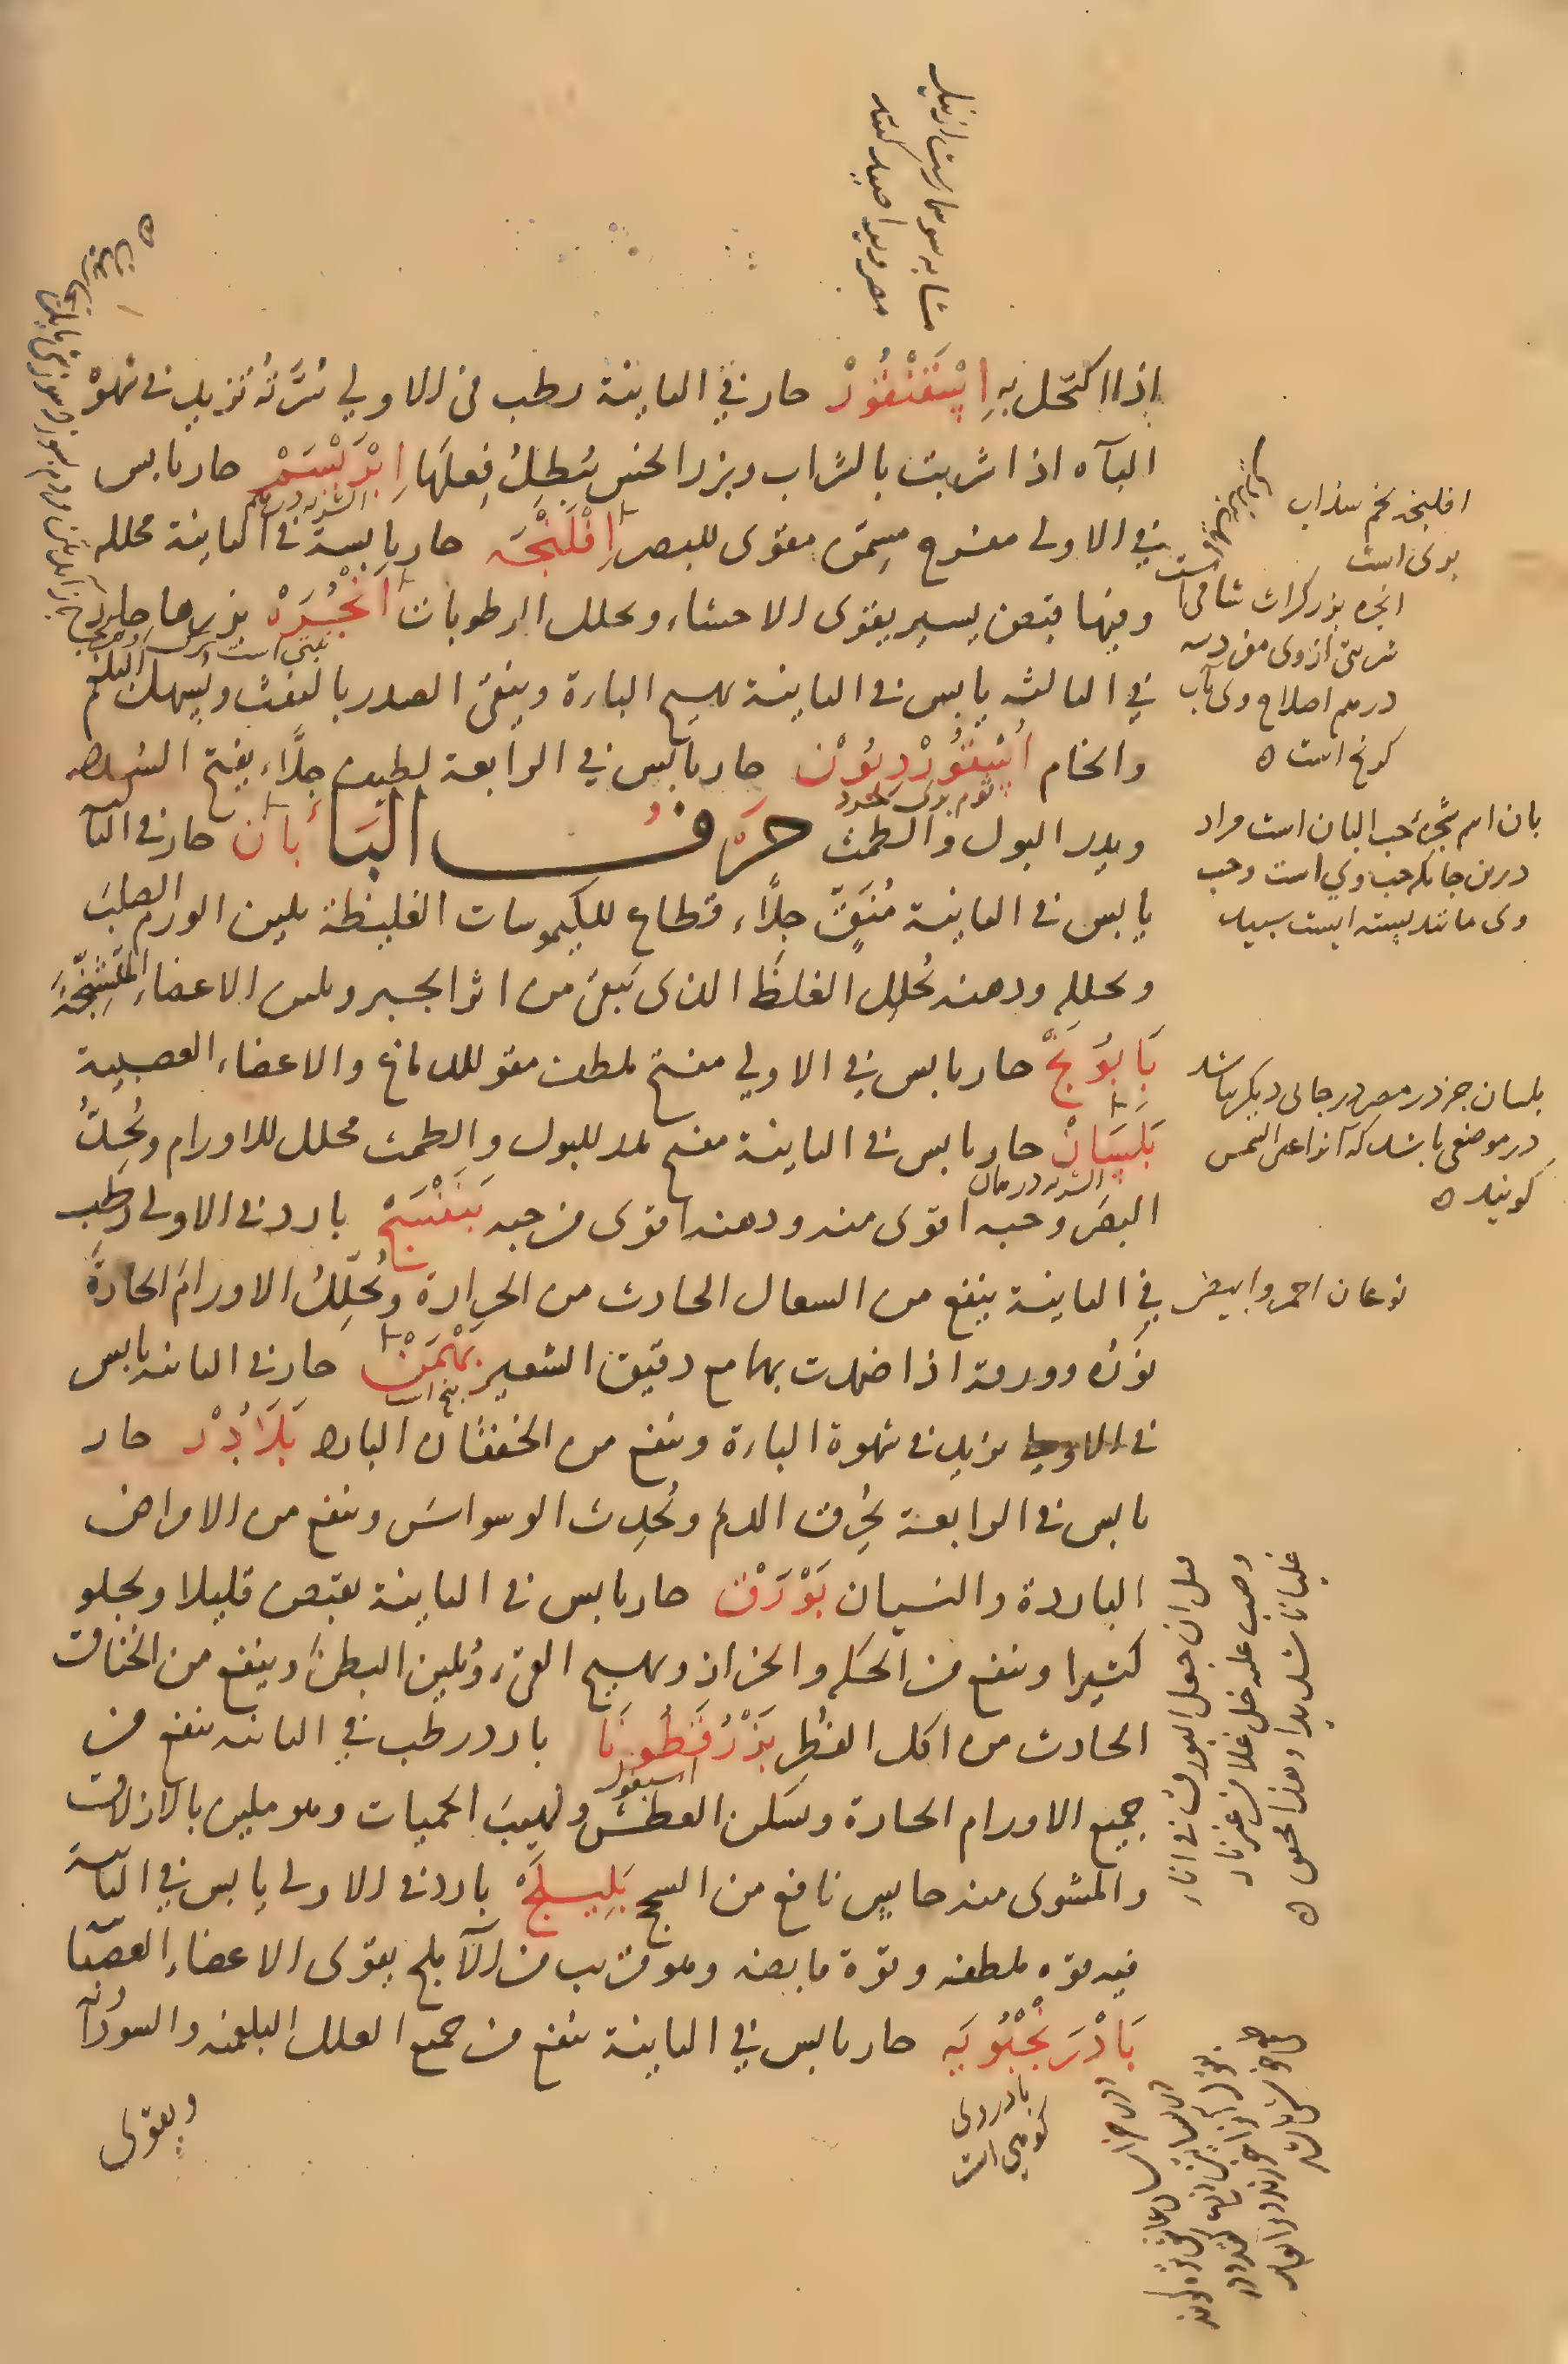 اذا اكتحل به اِسْقَنْقُوْرْ حار في الثانية رطب في الاولي سُرَّتُهُ تزيد في شهوة
الباه اذا شربت بالشراب وبزر الخس يُبطِلُ فِعلَهَا اِبْرَيْسَمْ حار يابس
في الاولى مفرح مسمّن مقوى للبصر اِفْلَنْجَه حار يابسة في الثانية محلله
وفيها قبض يسير يقوى الاحشاء ويحلل الرطوبات اَنْجُرَهْ بزرها حار
في الثالثه يابس في الثانية يهيج الباءة وينقى الصدر بالنفث ويسهل البلغم
والخام اُسْقُوْرْدِيُوْن حار يابس في الرابعة لطيف جلّاء يفتح السُدد
ويدر البول والطمث حَرْفُ البَاء بان حار في الثا
يابس في الثانية مُنَقٍّ جلّاء قطاع للكيموسات الغليظة يلين الورم الصلب
ويحلله ودهنه يُحلل الغلظَ الذى يَبقى من اثر الجبر ويلين الاعضاء المتشنّجة
بَابُوْنَجْ حار يابس في الاولي مفتح ملطف مقو للدماغ والاعضاء العصبية
بَلَسَانْ حار يابس في الثانية مفتح مدر للبول والطمث محلل للاورام ويُحِدُّ
البصر وحبه اقوى منه ودهنه اقوى من حبه بَنَفْسَجْ بارد في الاولى رطب
في الثانية ينفع من السعال الحادث من الحرارة ويُحَلِّلُ الاورام الحادّة
نَورُه وورقه اذا ضمدت بهما مع دقيق الشعير بَهْمَنْ حار في الثانيه يابس
في الاولي يزيد في شهوة الباءة وينفع من الخفقان البارد بَلَاذُرْ حار
يابس في الرابعة يُحرِق الدم ويُحدِث الوسواسَ وينفع من الامراض
الباردة والنسيان بَوْرَقْ حار يابس في الثانية يقبض قليلا ويجلو
كثيرا وينفع من الحكه والحزاز ويهيج القىء ويُلين البطنَ وينفع من الخناق
الحادث من اكل الفُطْرِ بَزْرُقَطُوْنَا بارد رطب في الثانيه ينفع من
جميع الاورام الحادة ويسكن العطشَ ولهيبَ الحميات وهو ملين بالازلاق
والمشوى منه حابس نافع من السحج بَلِيلَجْ بارد في الاولى يابس في الثانية
فيه قوه ملطفه وقوة قابضه وهو قريب من الآملج يقوى الاعضاء العصبيّا
بَاذْرَنْجْبُوْيَه حار يابس في الثانية ينفع من جميع العلل البلغميه والسوداويه
ويقوى
مشابه سوسمارست از نيل
مصر ويرا صيد كنند
افلنجه تخم سذاب
برى است
انجره بزر كراث شامى است
شربتى از وى مفرد سه
درهم اصلاح وى بآب
كرنج است ه
ثوم برى كويند
بان اسم شجرهٔ حب البان است مراد
درين جا بكه حب وي است وحب
وى مانند پسته ايست سپيد
بلسان جز در مصر در جاى ديكر نباشد
در موضعى باشد كه آنرا عين الشمس
كويند ه
الشربه درهمان
نوعان احمر وابيض
بيخ است
اسبغول
ان جعل البورق في اناء
وصب عليه خل
غليانا شديدا
بادروى
كوهى است